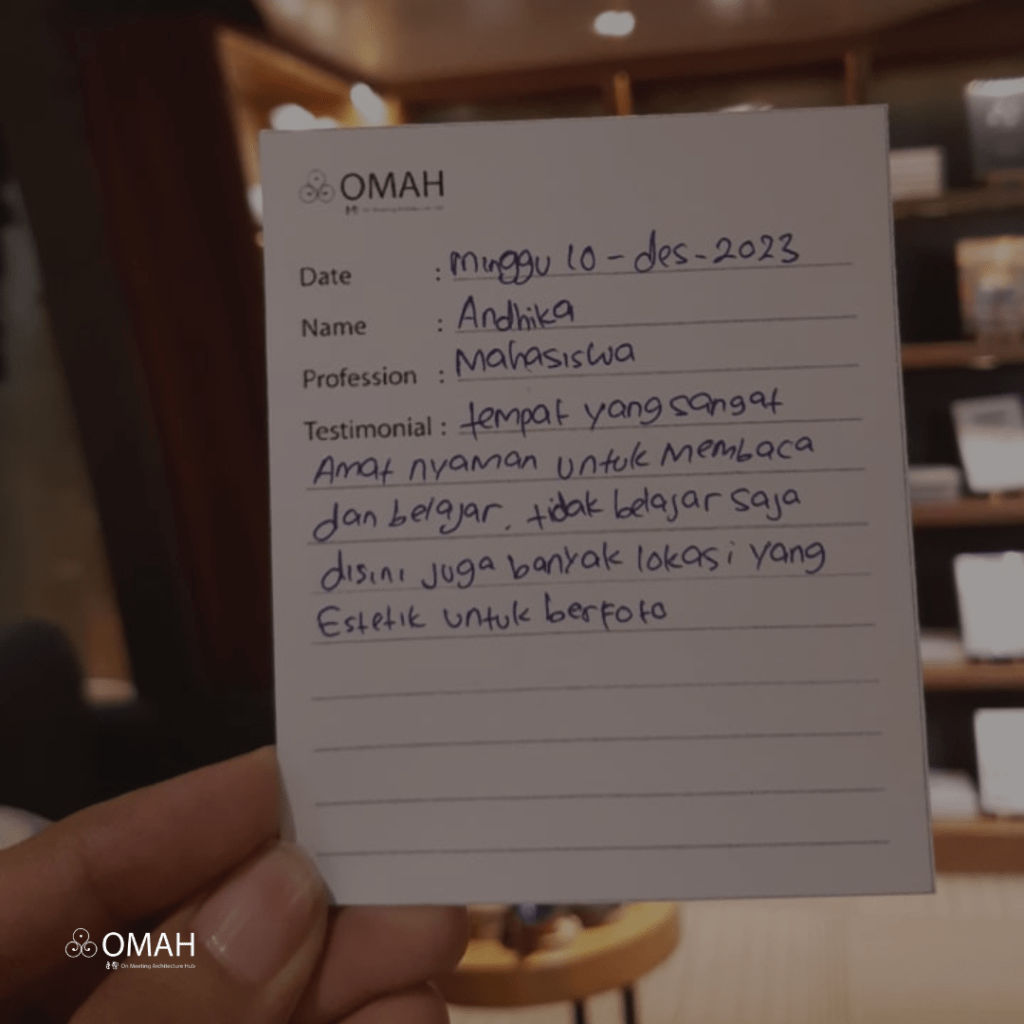 OMAH
Date : Minggu 10 - des - 2023
Name : Andhika
Profession : Mahasiswa
Testimonial : tempat yang sangat
Amat nyaman untuk Membaca
dan belajar. tidak belajar saja
disini juga banyak lokasi yang
Estetik untuk berfoto
OMAH
On Meeting Architecture Hub